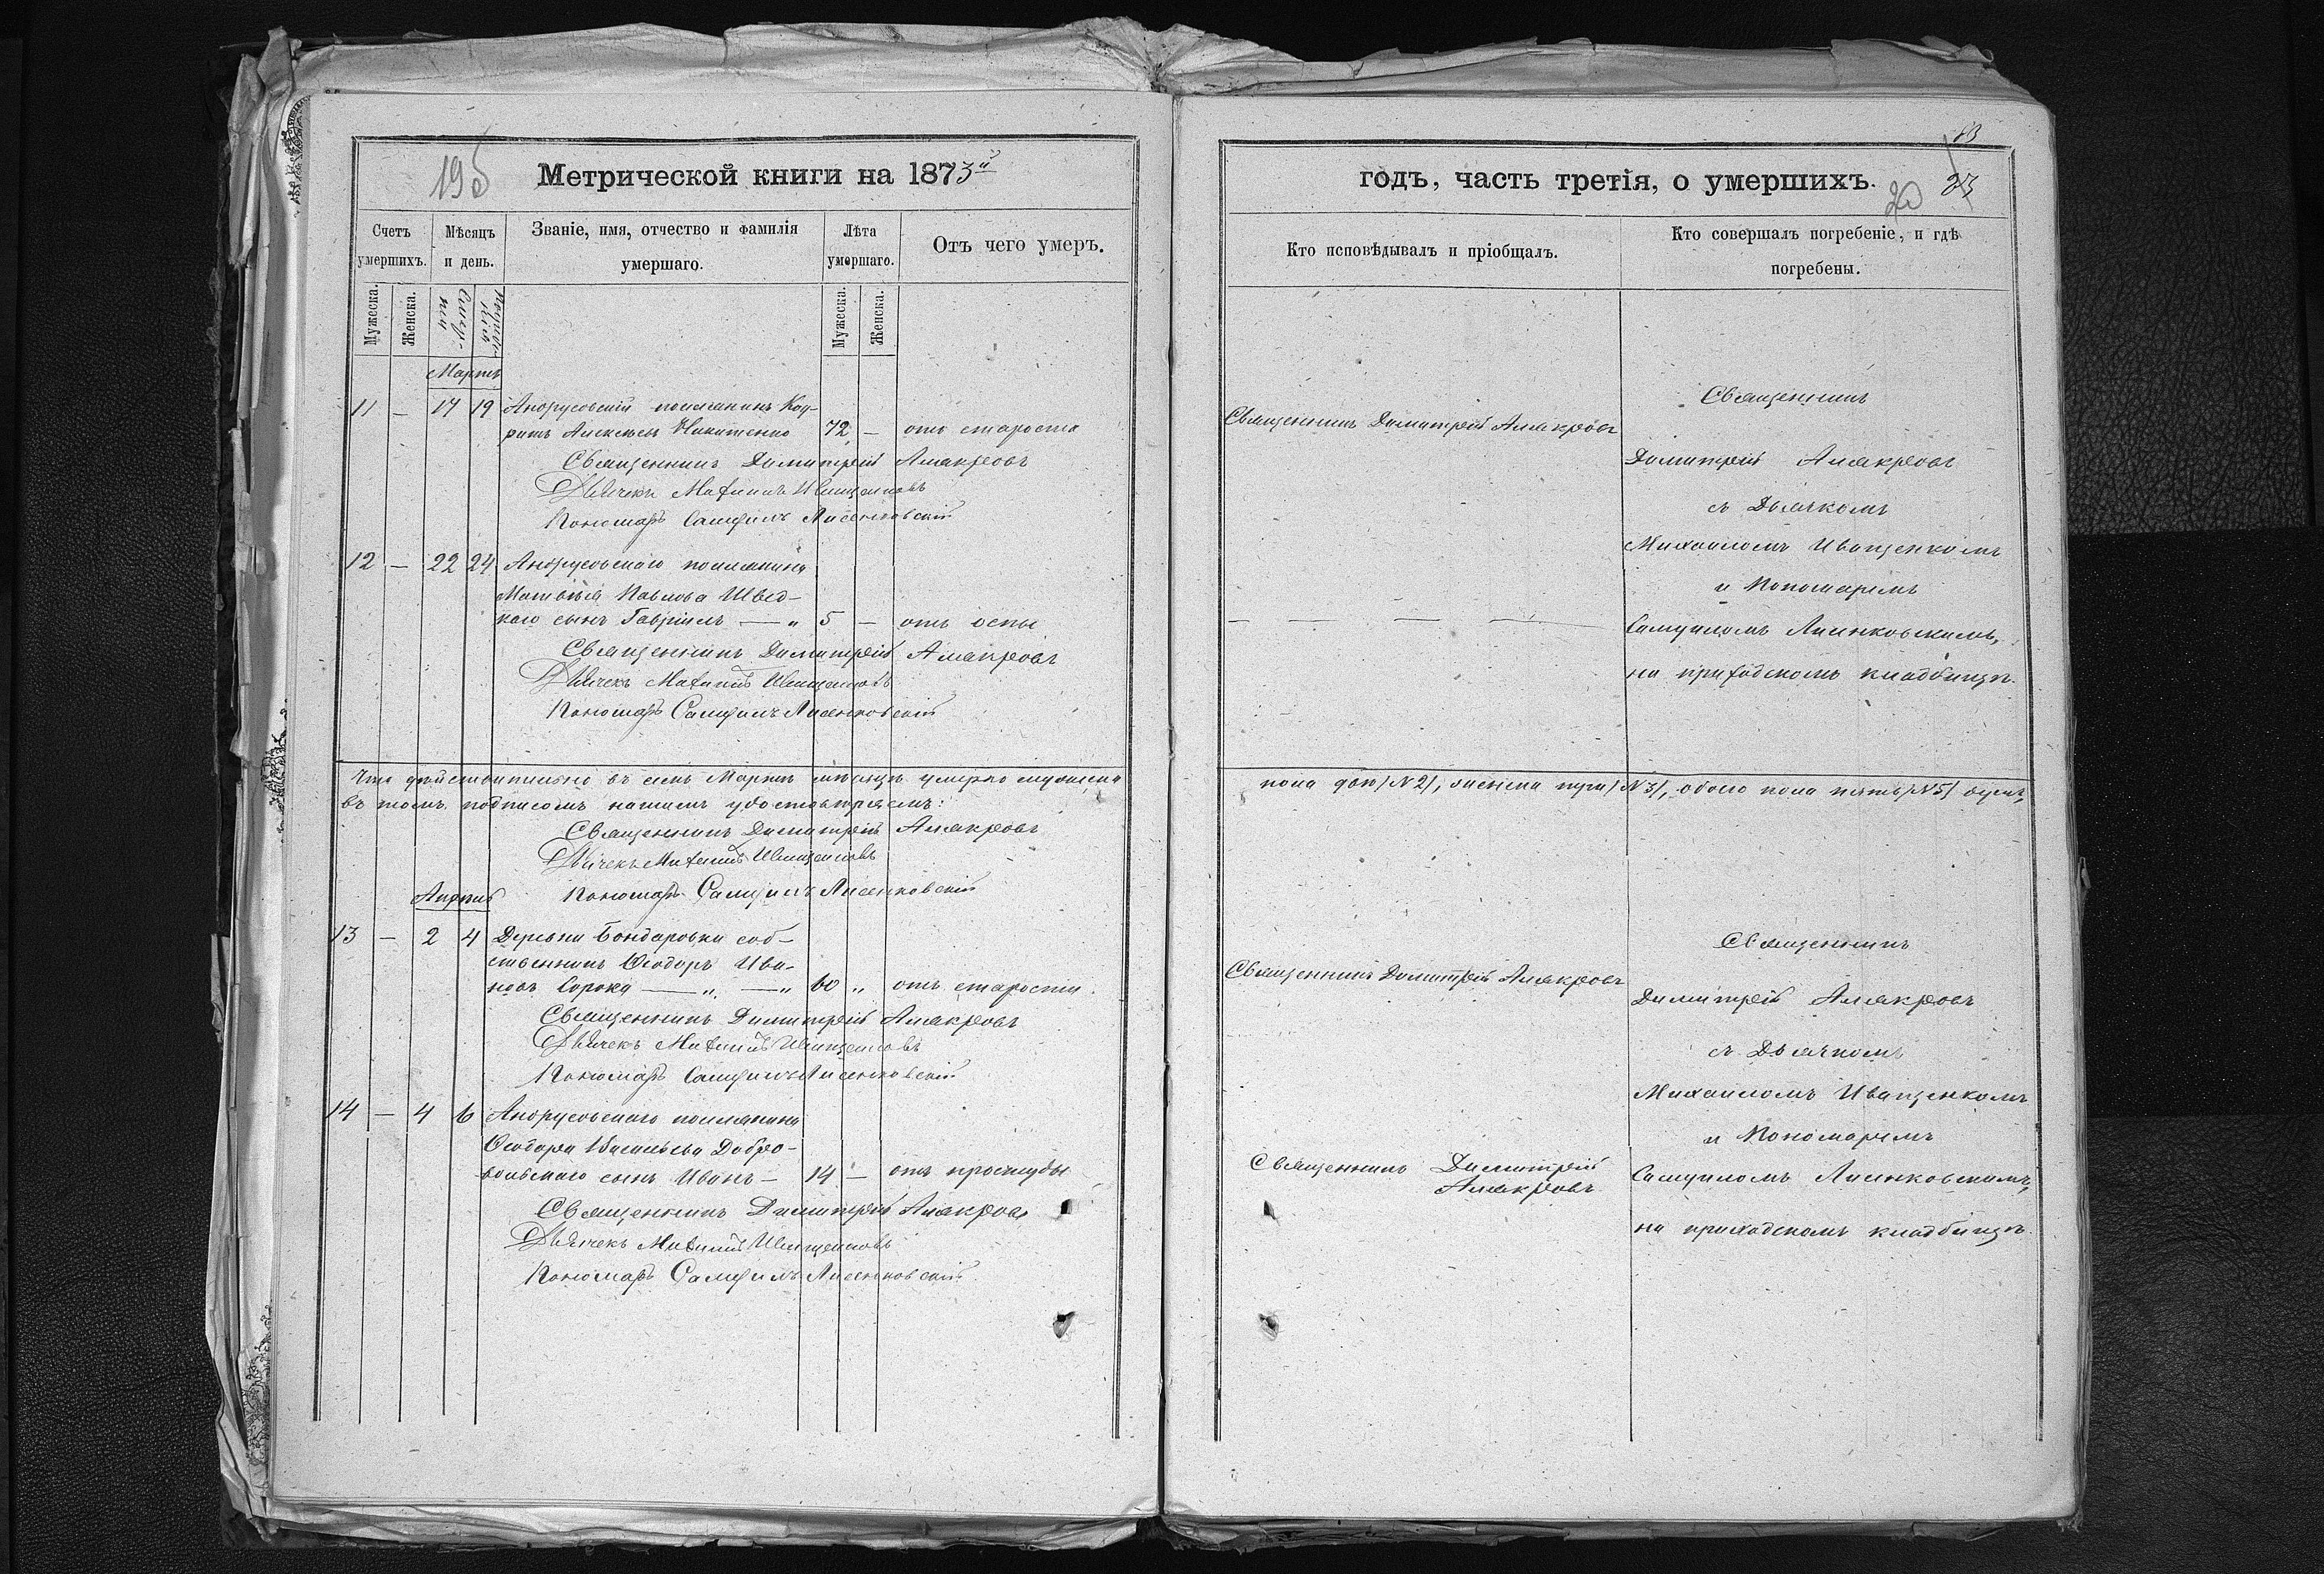 19б
Метрической книги на 1873й
Счетъ умершихъ.
Мѣсяцъ и день.
Званіе, имя, отчество и фамилія умершаго.
Лѣта умершаго.
Отъ чего умеръ.
Мужеска.
Женска.
Мужеска.
Женска.
Мартъ
11 — 17 19 Андрусовскій поселянинъ Код-
ратъ Алексѣевъ Никитенко 72 — отъ старости
Священникъ Димитрій
Дьячекъ Михаилъ
Пономарь Самуилъ Лисенковскій
12 — 22 24 Андрусовскаго поселянина
Матвѣя Павлова Швед-
каго сынъ Гавріилъ — „ 5 — отъ оспы
Священникъ Димитрій
Дьячекъ Михаилъ
Пономарь Самуилъ Лисенковскій
Что дѣйствительно въ семъ Мартѣ мѣсяцѣ умерло мужеска
въ томъ подписомъ нашимъ удостовѣряемъ:
Священникъ Димитрій
Дьячекъ Михаилъ
Пономарь Самуилъ Лисенковскій
Апрѣль
13 — 2 4 Деревни Бондаровки соб-
ственникъ Ѳеодоръ Ива-
новъ Сорока — „ — „ 60 „ отъ старости.
Священникъ Димитрій
Дьячекъ Михаилъ
Пономарь Самуилъ Лисенковскій
14 — 4 6 Андрусовскаго поселянина
Ѳеодора Васильева Добро-
вольскаго сынъ Иванъ — 14 — отъ простуды
Священникъ Димитрій
Дьячекъ Михаилъ
Пономарь Самуилъ Лисенковскій
годъ, часть третія, о умершихъ.
20
Кто исповѣдывалъ и пріобщалъ.
Кто совершалъ погребеніе, и гдѣ погребены.
Священникъ Димитрій
Священникъ
Димитрій
съ Дьячкомъ
Михаиломъ Иващенкомъ
и Пономаремъ
— — — —
Самуиломъ Лисенковскимъ,
на приходскомъ кладбищѣ.
пола два (№2), женска три (№3), обоего пола пять (№5) душъ,
Священникъ Димитрій
Священникъ
Димитрій
съ Дьячкомъ
Михаиломъ Иващенкомъ
и Пономаремъ
Священникъ Димитрій
Самуиломъ Лисенковскимъ,
на приходскомъ кладбищѣ.